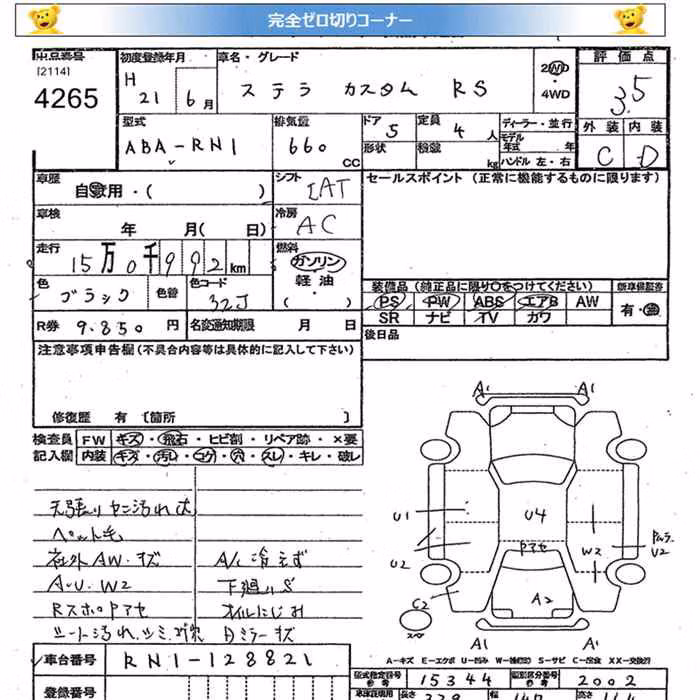 完全ゼロ切りコーナー
出品番号 初度登録年月 車名・グレード 評価点
[2114] H 2WD 3.5
4265 21 6月 ステラ カスタム RS 4WD
外装 内装
型式 排気量 ドア 5 定員 4人 ディーラー・並行 C D
ABA-RN1 660 CC 形状 積載 kg モデル年式 年
ハンドル 左・右
車歴 シフト セールスポイント (正常に機能するものに限ります)
自家用・( ) IAT
車検 冷房
年 月( 日) AC
走行 燃料
15万0千992km ガソリン
色 色替 色コード 軽油 装備品 (純正品に限り○をつけてください) 新車保証書
ブラック 32J ・( ) PS PW ABS エアB AW 有・無
R券 9.850円 名変通知期限 月 日 SR ナビ TV カワ
注意事項申告欄(不具合内容等は具体的に記入して下さい) 後日品
修復歴 有 〔箇所 〕
A1 A1
検査員 FW キズ・飛石・ヒビ割・リペア跡・×要
記入欄 内装 キズ・汚れ・コゲ・穴・スレ・キレ・破レ
天張りヤニ汚れ大
ペット毛
社外AW・キズ A/C冷えず
A・U・W2 下廻りS
Rスポロアセ オイルにじみ
シート汚れ、シミ、 Dミラーキズ
U1 U4 U2
U2 アセ W2
C2 A2
A1 A1
A-キズ E-エクボ U-凹み W-補修跡 S-サビ C-腐食 XX-交換済
車台番号 RN1-128821
型式指定番号 15344 類別区分番号 2002
登録番号 長さ 339 幅 147 高さ